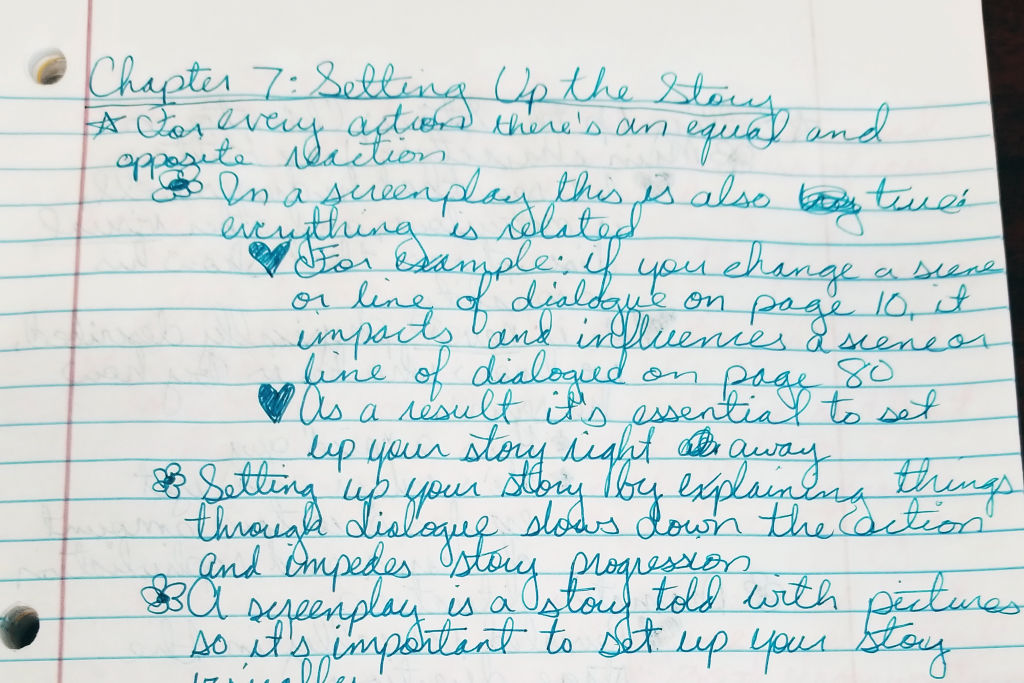 Chapter 7: Setting Up the Story
☆ For every action there's an equal and
opposite reaction
In a screenplay this is also true:
everything is related
♥ For example: if you change a scene
or line of dialogue on page 10, it
impacts and influences a scene or
line of dialogue on page 80
♥ As a result it's essential to set
up your story right away
Setting up your story by explaining things
through dialogue slows down the action
and impedes story progression
A screenplay is a story told with pictures
so it's important to set up your story
visually